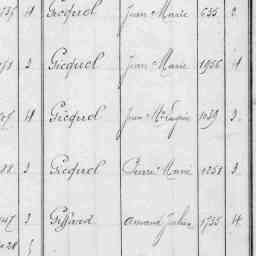 4 Gicquel Jean Marie 635 2
2 Gicquel Jean Marie 1956 4
4 Gicquel Jean Mie 1039 3
3 Gicquel Pierre Marie 1251 3
2 Giffard Amand Julien 1735 4
28